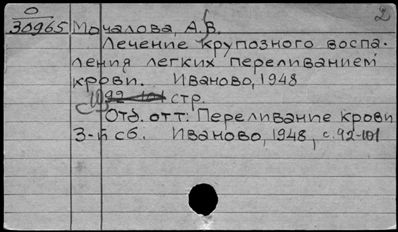 О
2
30965 Мочалова, А.В.
Лечение крупозного воспа-
ления легких переливанием
крови. Иваново, 1948
10 92-101 стр.
Отд. отт: Переливание крови
3-й сб. Иваново, 1948, с. 92-101